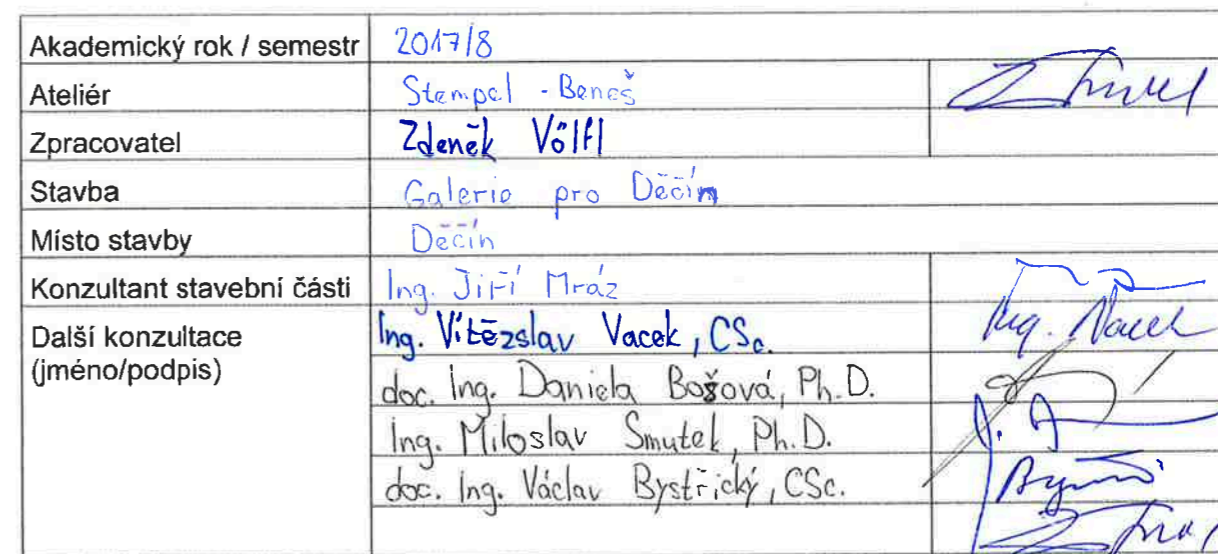 Akademický rok / semestr 2017/8
Ateliér Stempel - Beneš
Zpracovatel Zdeněk Völfl
Stavba Galerie pro Děčín
Místo stavby Děčín
Konzultant stavební části Ing. Jiří Mráz
Další konzultace Ing. Vítězslav Vacek, CSc. Ing. Vacek
(jméno/podpis) doc. Ing. Daniela Bošová, Ph.D.
Ing. Miloslav Smutek, Ph.D.
doc. Ing. Václav Bystřický, CSc.